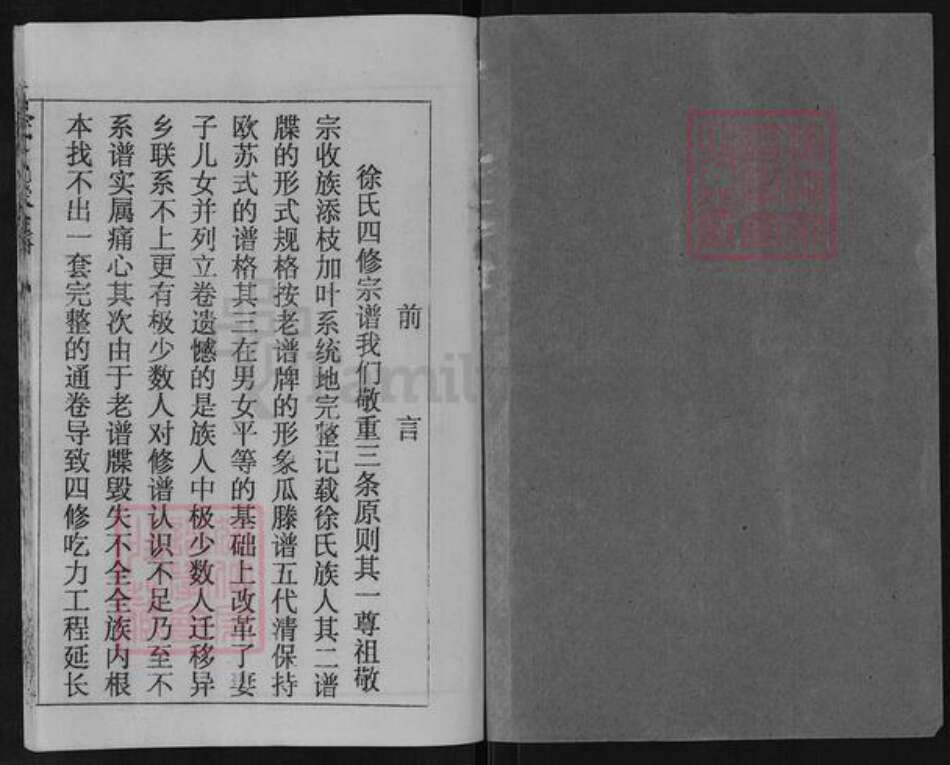 前言
徐氏四修宗谱我们敬重三条原则其一尊祖敬
宗收族添枝加叶系统地完整记载徐氏族人其二谱
牒的形式规格按老谱牌的形象瓜滕谱五代清保持
欧苏式的谱格其三在男女平等的基础上改革了妻
子儿女并列立卷遗憾的是族人中极少数人迁移异
乡联系不上更有极少数人对修谱认识不足乃至不
系谱实属痛心其次由于老谱牒毁失不全全族内根
本找不出一套完整的通卷导致四修吃力工程延长